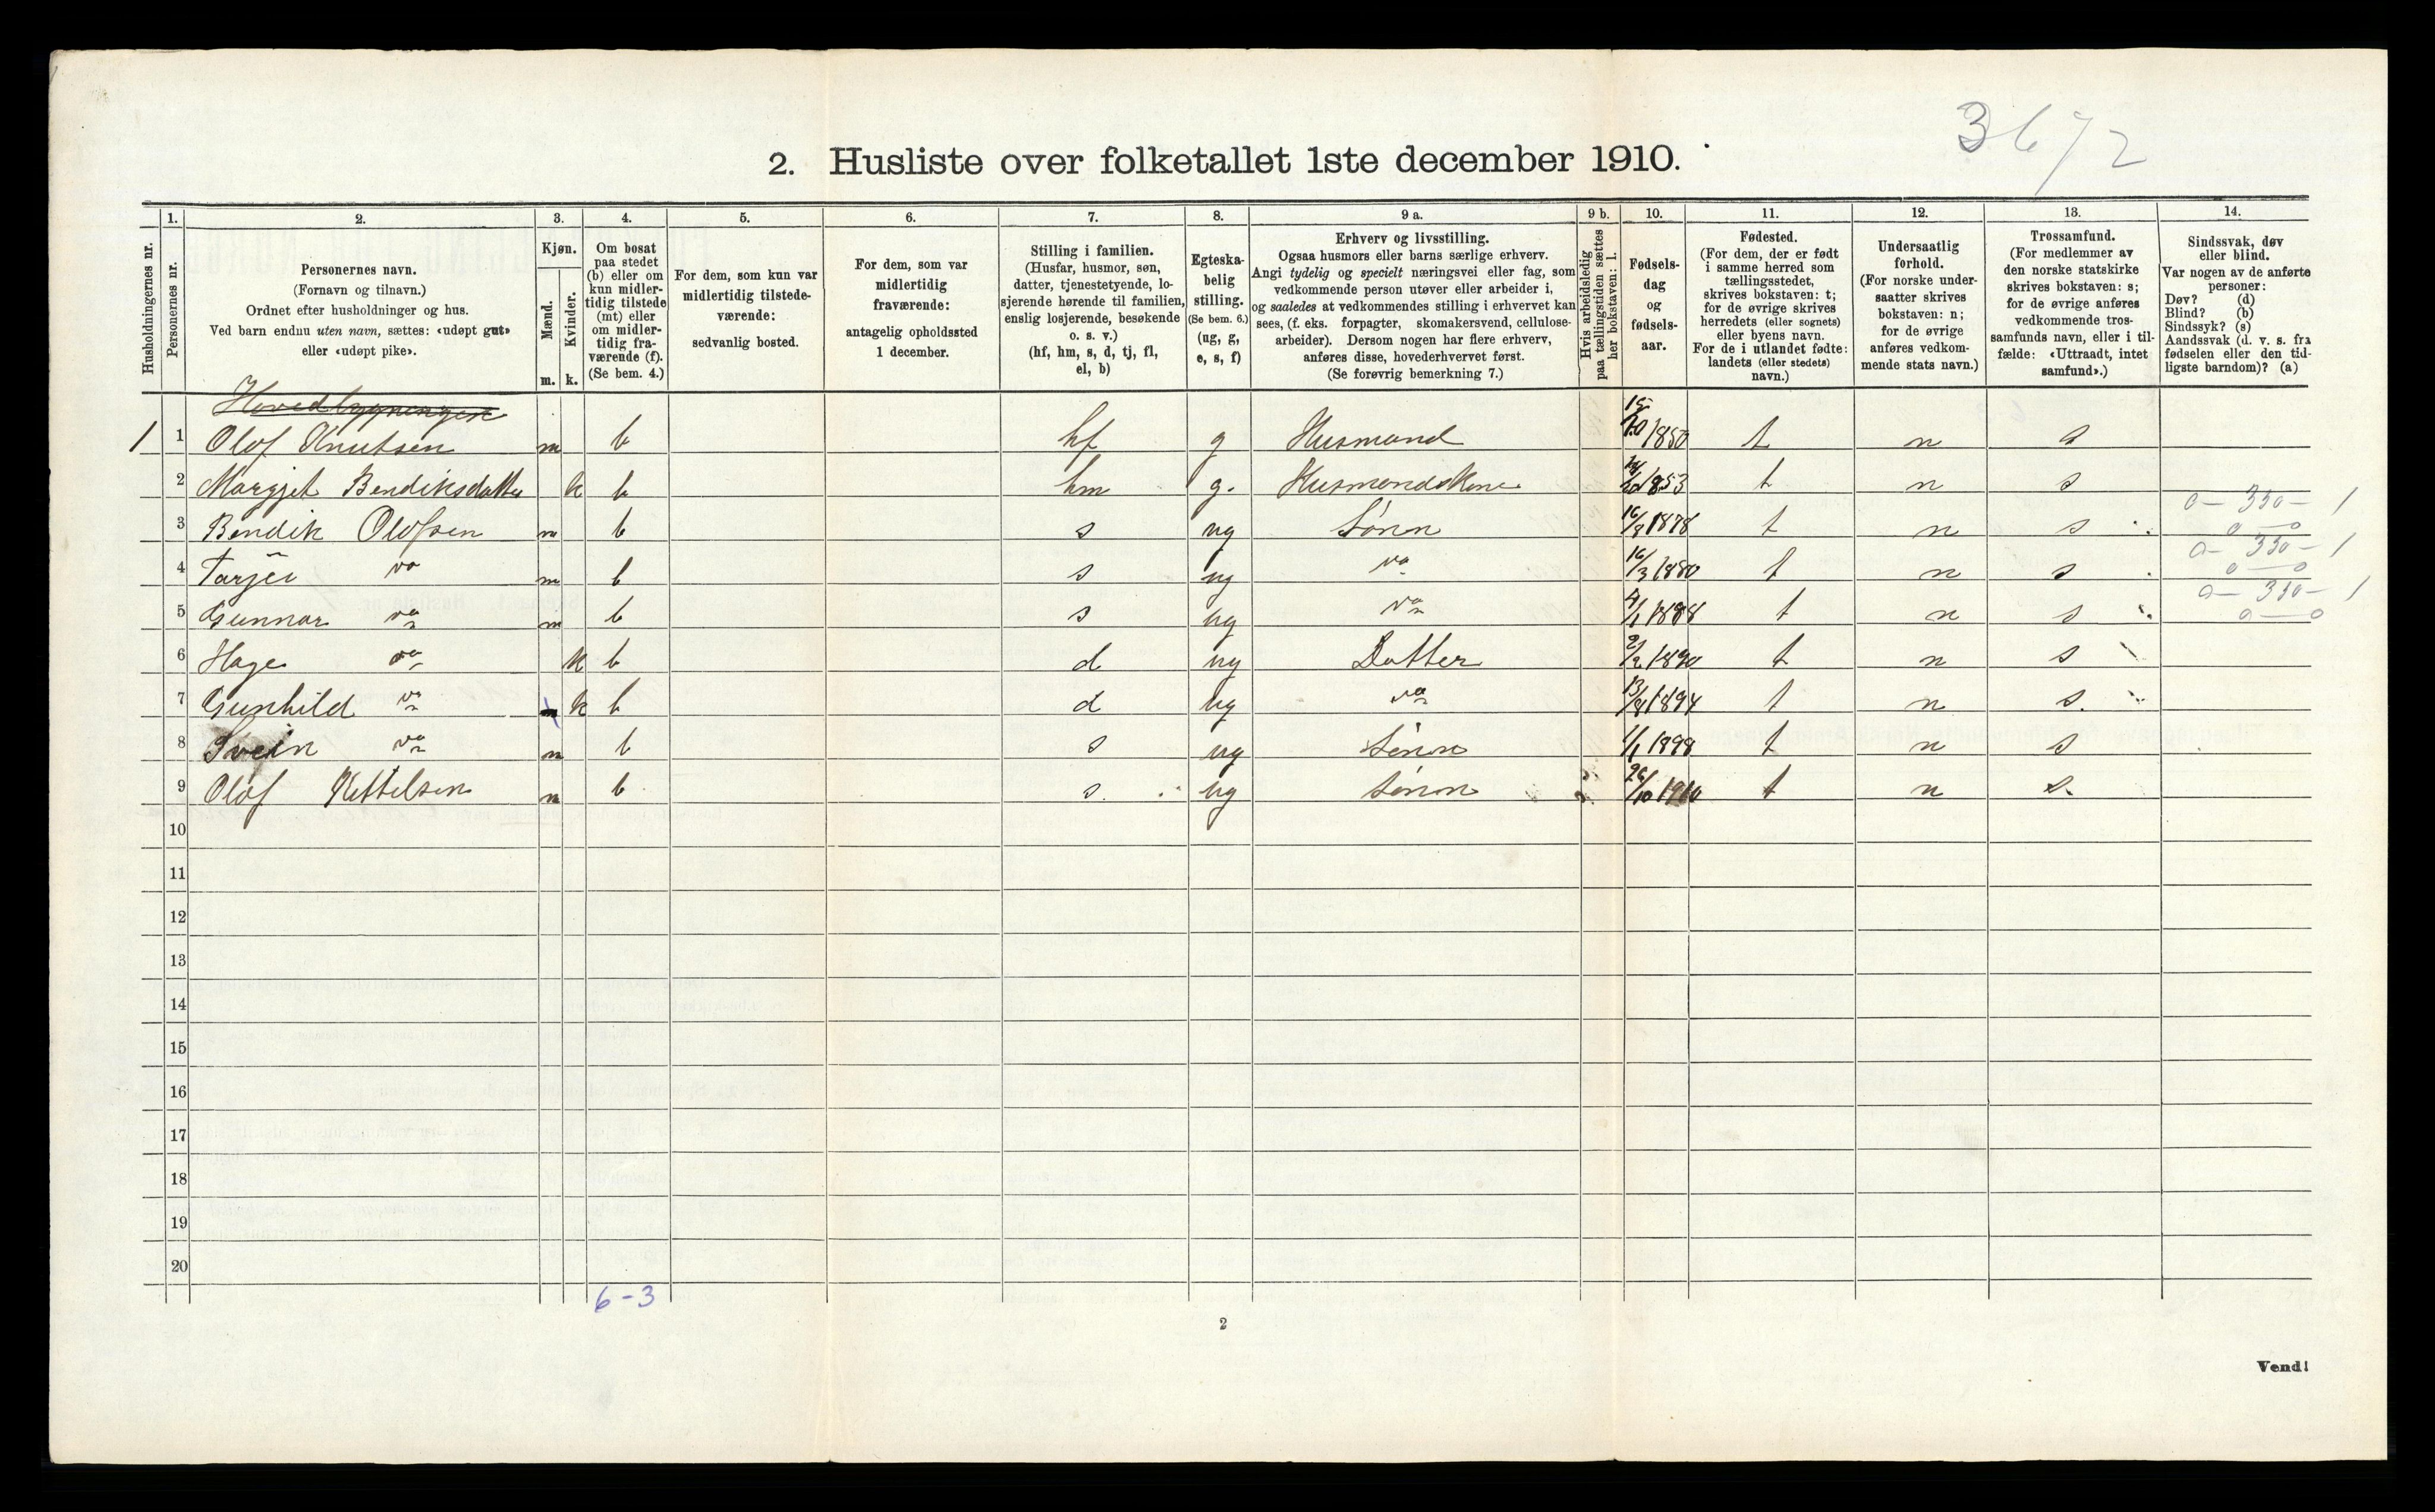 3672
2. Husliste over folketallet 1ste december 1910.
Husholdningernes nr.
1.
Personernes nr.
2.
Personernes navn.
(Fornavn og tilnavn.)
Ordnet efter husholdninger og hus.
Ved barn endnu uten navn, sættes: «udøpt gut»
eller «udøpt pike».
3.
Kjøn.
Mænd.
m.
Kvinder.
k.
4.
Om bosat
paa stedet
(b) eller om
kun midler-
tidig tilstede
(mt) eller
om midler-
tidig fra-
værende (f).
(Se bem. 4.)
5.
For dem, som kun var
midlertidig tilstede-
værende:
sedvanlig bosted.
6.
For dem, som var
midlertidig
fraværende:
antagelig opholdssted
1 december.
7.
Stilling i familien.
(Husfar, husmor, søn,
datter, tjenestetyende, lo-
sjerende hørende til familien,
enslig losjerende, besøkende
o. s. v.)
(hf, hm, s, d, tj, fl,
el, b)
8.
Egteska-
belig
stilling.
(Se bem. 6.)
(ug, g,
e, s, f)
9 a.
Erhverv og livsstilling.
Ogsaa husmors eller barns særlige erhverv.
Angi tydelig og specielt næringsvei eller fag, som
vedkommende person utøver eller arbeider i,
og saaledes at vedkommendes stilling i erhvervet kan
sees, (f. eks. forpagter, skomakersvend, cellulose-
arbeider). Dersom nogen har flere erhverv,
anføres disse, hovederhvervet først.
(Se forøvrig bemerkning 7.)
9 b.
Hvis arbeidsledig
paa tællingstiden sættes
her bokstaven: l.
10.
Fødsels-
dag
og
fødsels-
aar.
11.
Fødested.
(For dem, der er født
i samme herred som
tællingsstedet,
skrives bokstaven: t;
for de øvrige skrives
herredets (eller sognets)
eller byens navn.
For de i utlandet fødte:
landets (eller stedets)
navn.)
12.
Undersaatlig
forhold.
(For norske under-
saatter skrives
bokstaven: n;
for de øvrige
anføres vedkom-
mende stats navn.)
13.
Trossamfund.
(For medlemmer av
den norske statskirke
skrives bokstaven: s;
for de øvrige anføres
vedkommende tros-
samfunds navn, eller i til-
fælde: «Uttraadt, intet
samfund».)
14.
Sindssvak, døv
eller blind.
Var nogen av de anførte
personer:
Døv? (d)
Blind? (b)
Sindssyk? (s)
Aandssvak (d. v. s. fra
fødselen eller den tid-
ligste barndom)? (a)
Hovedbygningen
1 1 Olof Knutsen m b hf g Husmand 1850 t n s
2 Margjet Bendiksdatter k b hm g. Husmandskone 1853 t n s
3 Bendik Olofsen m b s ug Sønn 16/8 1878 t n s 0 — 330 — 1
0 — 0
4 Tarjei do m b s ug do 16/3 1880 t n s 0 — 330 — 1
0 — 0
5 Gunnar do m b s ug do 4/1 1888 t n s 0 — 330 — 1
0 — 0
6 Hage do k b d ug Datter 2/2 1890 t n s
7 Gunhild do k b d ug do 13/8 1894 t n s.
8 Svein do m b s ug Sønn 1/1 1898 t n s
9 Olof Kettelsen m b s. ug Sønn 26/10 1910 t n s.
10
11
12
13
14
15
16
17
18
19
20
6-3
2
Vend!